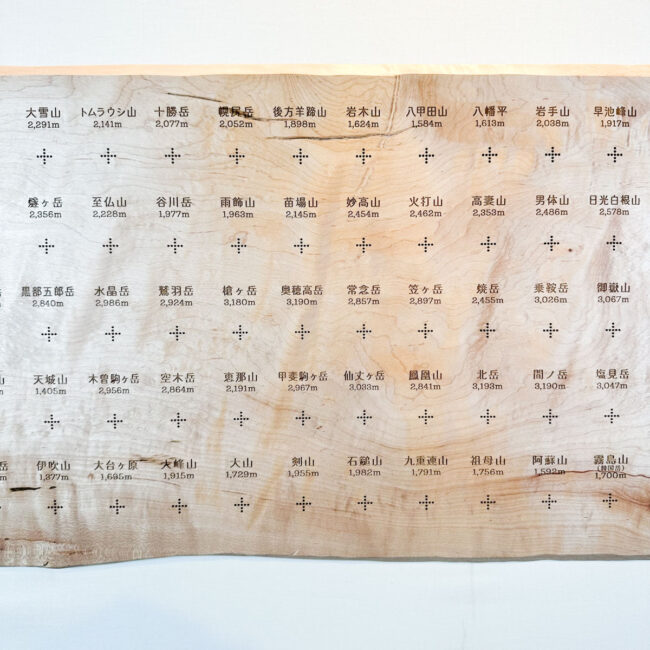 大雪山 トムラウシ山 十勝岳 幌尻岳 後方羊蹄山 岩木山 八甲田山 八幡平 岩手山 早池峰山
2,291m 2,141m 2,077m 2,052m 1,898m 1,624m 1,584m 1,613m 2,038m 1,917m
燧ヶ岳 至仏山 谷川岳 雨飾山 苗場山 妙高山 火打山 高妻山 男体山 日光白根山
2,356m 2,228m 1,977m 1,963m 2,145m 2,454m 2,462m 2,353m 2,486m 2,578m
岳 黒部五郎岳 水晶岳 鷲羽岳 槍ヶ岳 奥穂高岳 常念岳 笠ヶ岳 焼岳 乗鞍岳 御嶽山
2,840m 2,986m 2,924m 3,180m 3,190m 2,857m 2,897m 2,455m 3,026m 3,067m
山 天城山 木曽駒ヶ岳 空木岳 恵那山 甲斐駒ヶ岳 仙丈ヶ岳 鳳凰山 北岳 間ノ岳 塩見岳
1,405m 2,956m 2,864m 2,191m 2,967m 3,033m 2,841m 3,193m 3,190m 3,047m
岳 伊吹山 大台ヶ原 大峰山 大山 剣山 石鎚山 九重連山 祖母山 阿蘇山 霧島山
(韓国岳)
1,377m 1,695m 1,915m 1,729m 1,955m 1,982m 1,791m 1,756m 1,592m 1,700m